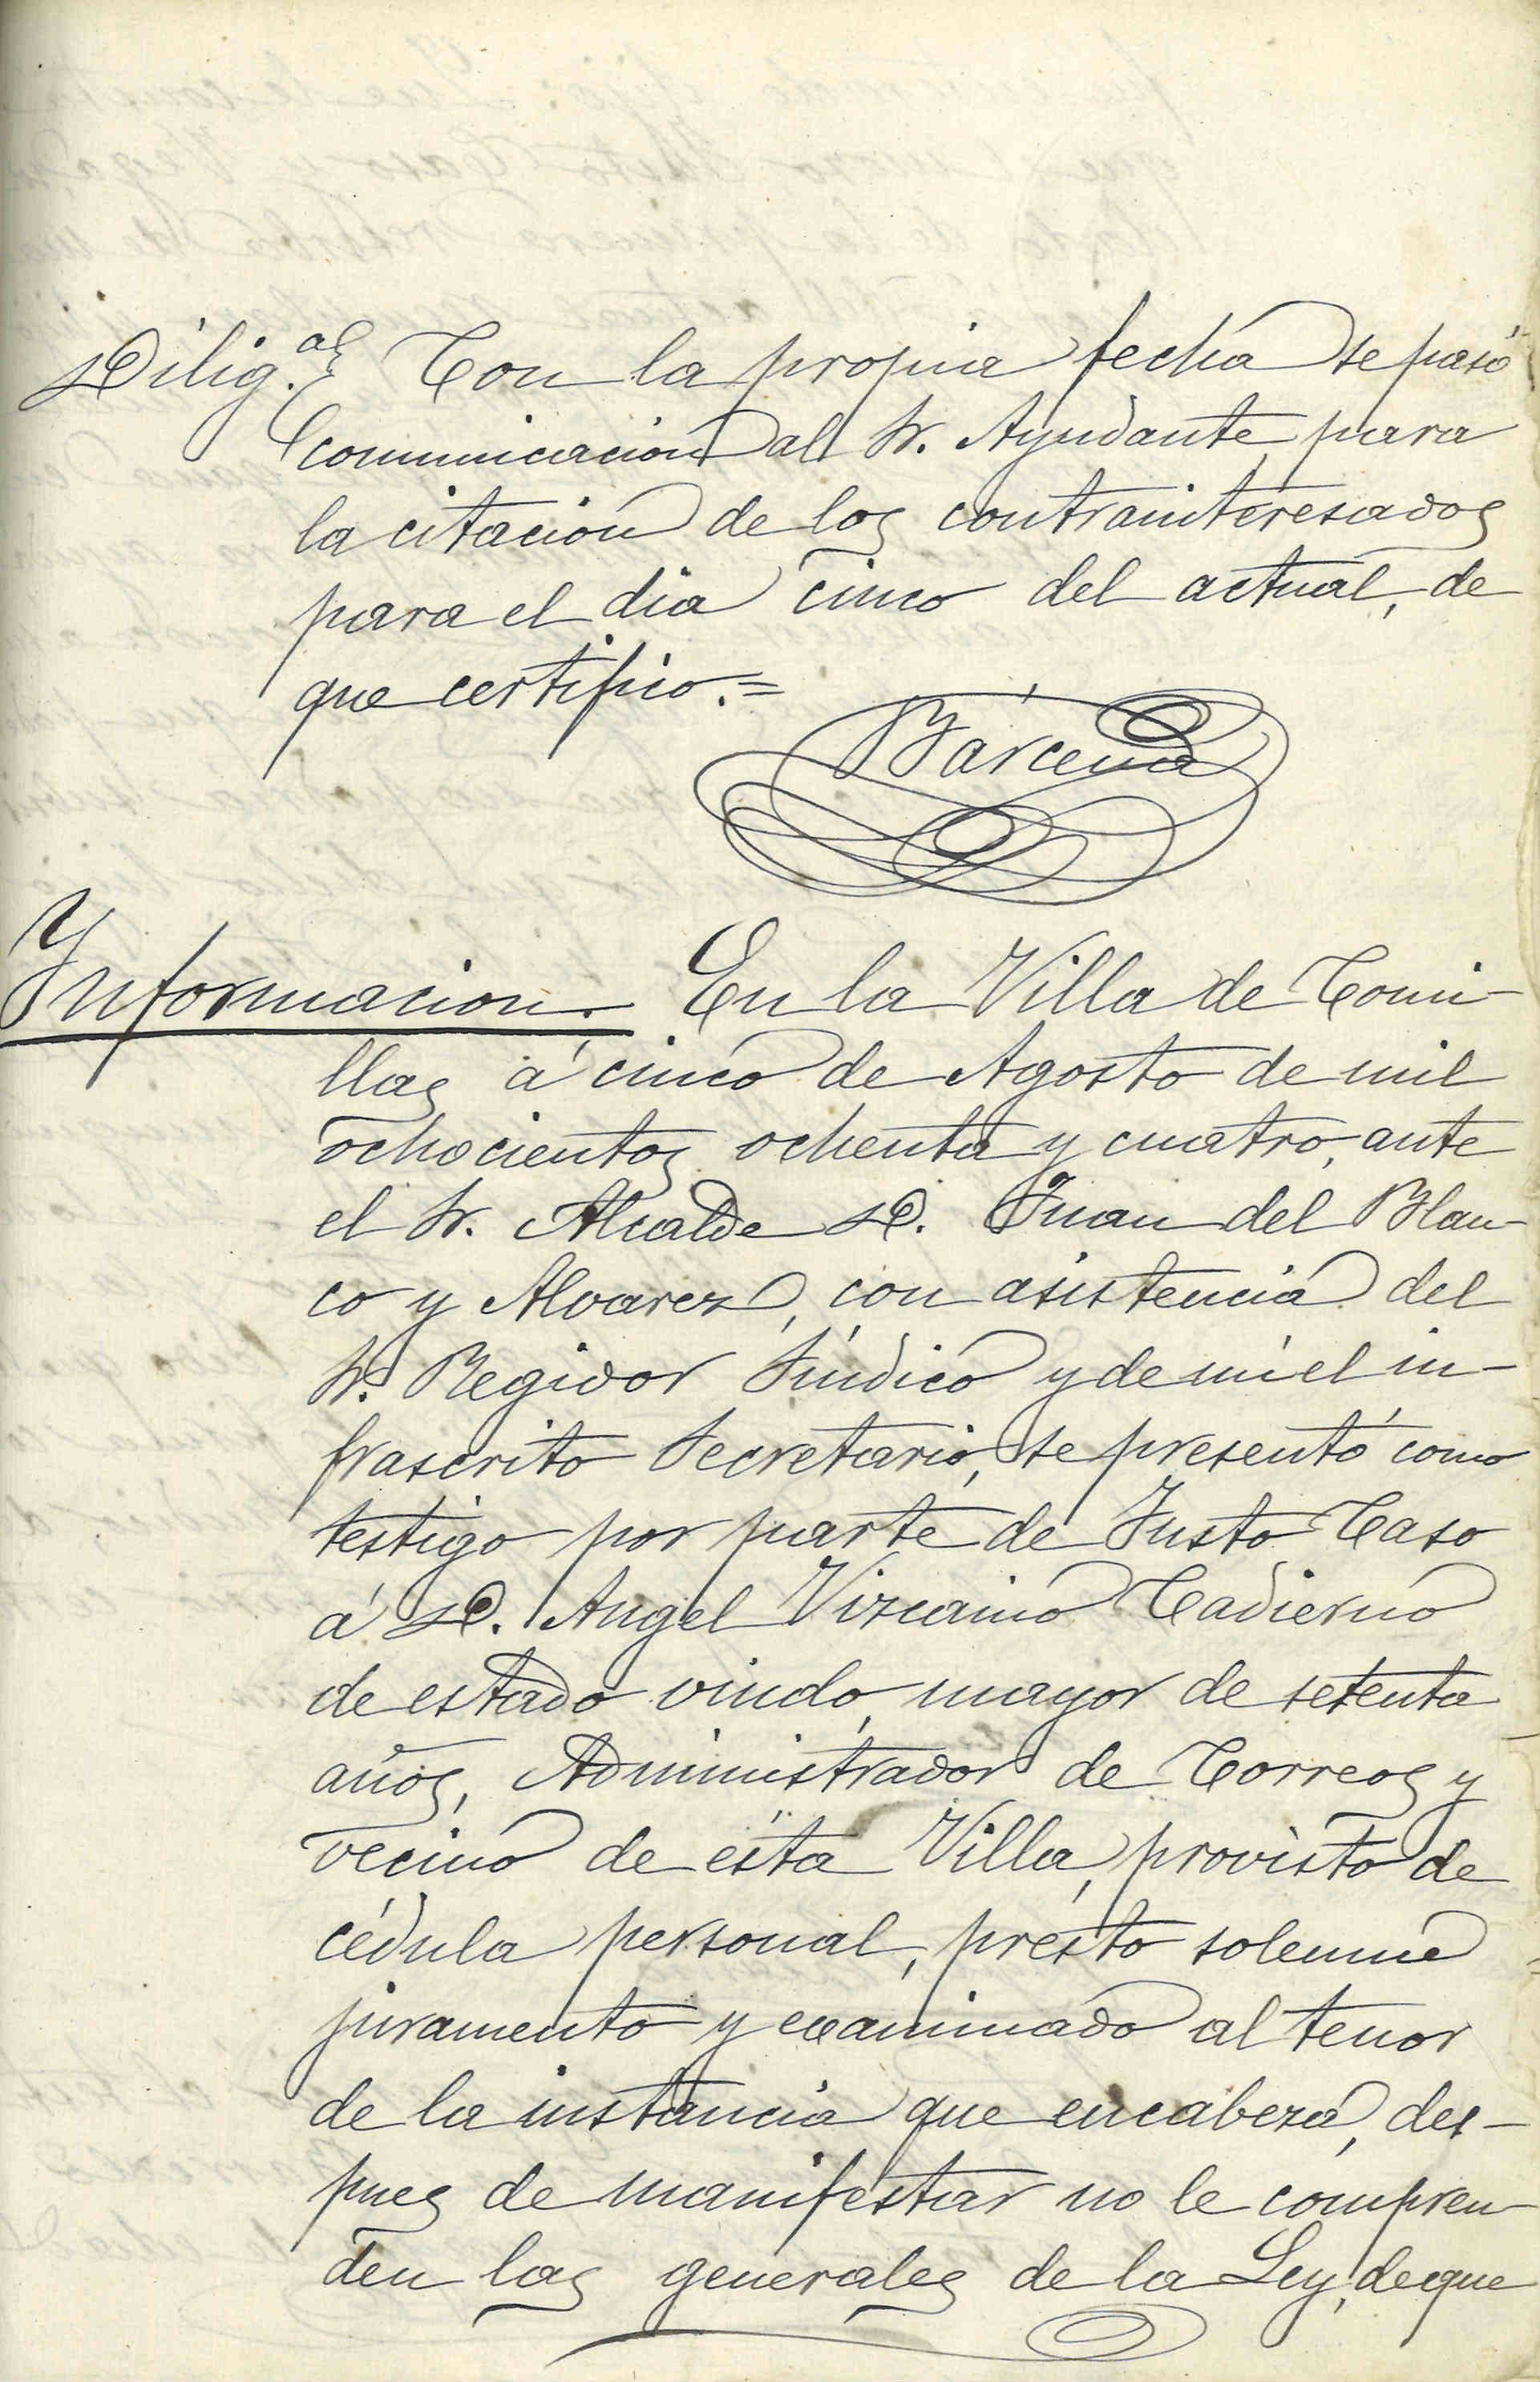 Dilig.ª Con la propia fecha se pasó
comunicacion al Sr. Ayudante para
la citacion de los contrainteresados
para el dia cinco del actual, de
que certifico.=
Bárcena
Informacion. En la Villa de Comi-
llas á cinco de Agosto de mil
ochocientos ochenta y cuatro, ante
el Sr. Alcalde D. Juan del Blan-
co y Alvarez, con asistencia del
Sr. Regidor Síndico y de mi el in-
frascrito Secretario, se presentó como
testigo por parte de Justo Caso
á D. Angel Vizcaino Cadierno
de estado viudo, mayor de setenta
años, Administrador de Correos y
vecino de ésta Villa, provisto de
cédula personal, prestó solemne
juramento y examinado al tenor
de la instancia que encabeza, des-
pues de manifestar no le compren-
den las generales de la Ley, de que